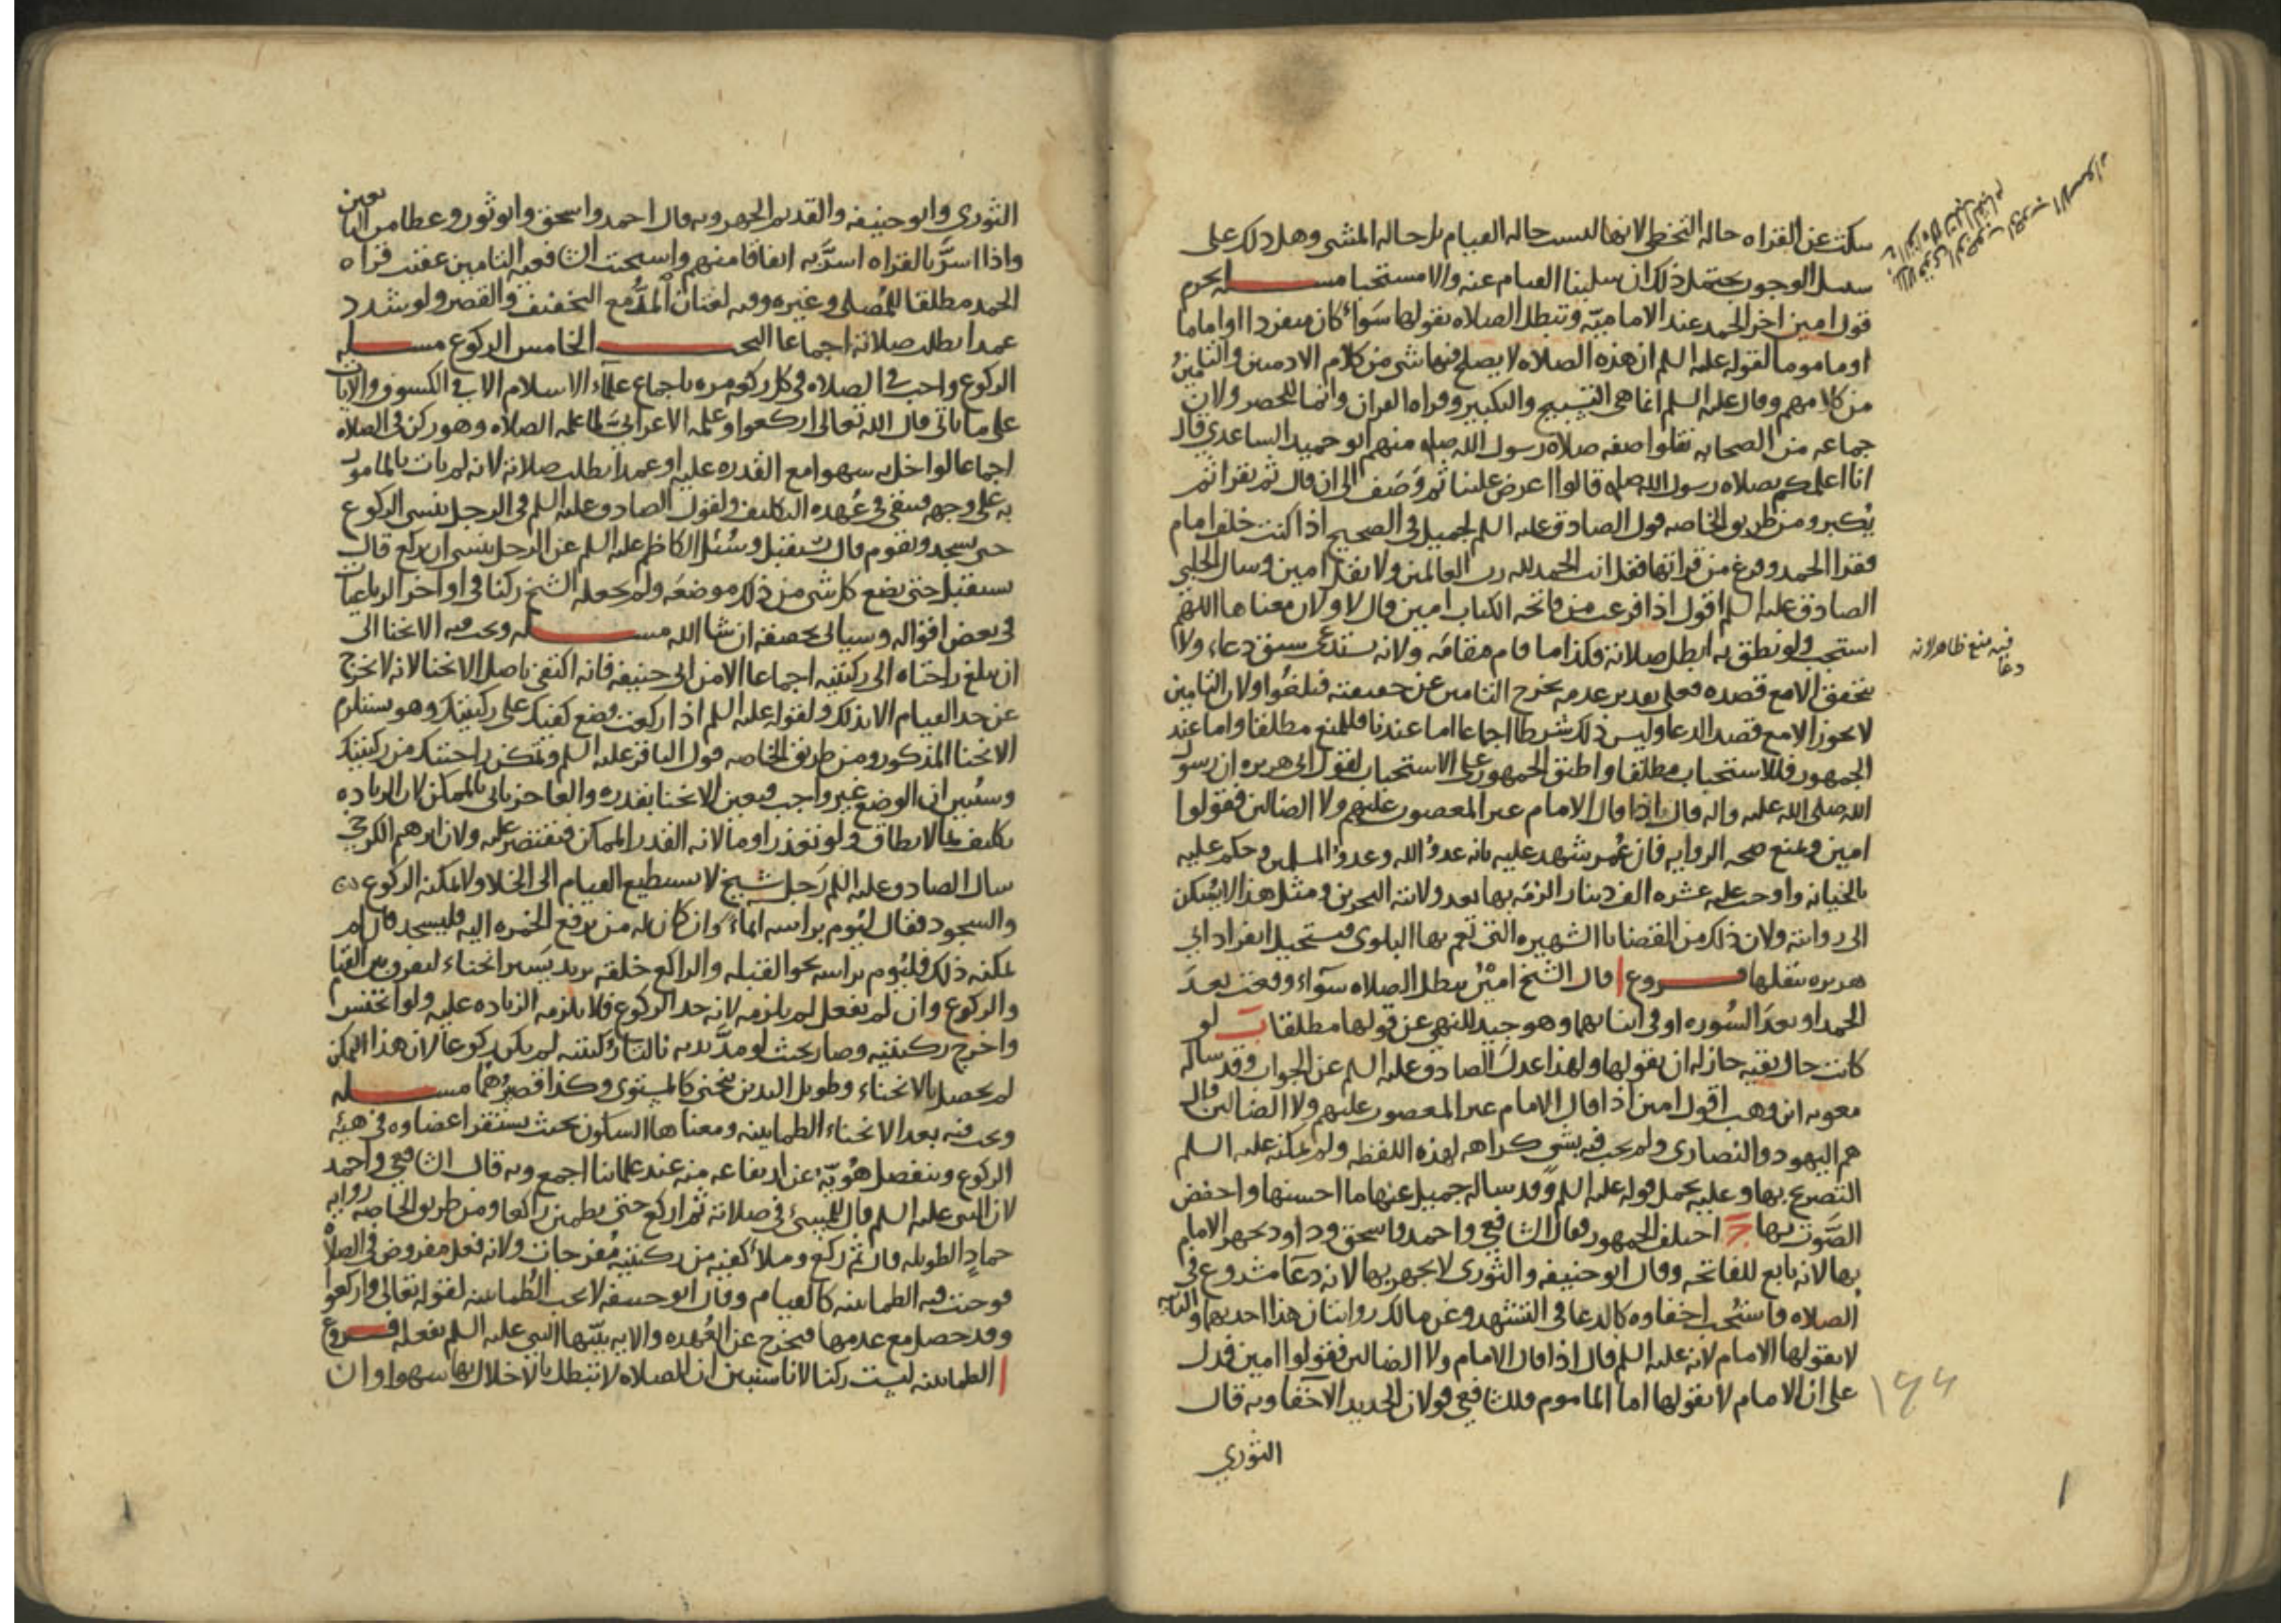 سكت عن القراه حاله التخطي لانها ليست حاله القيام بل حاله المشي وهل ذلك على
سبيل الوجوب يحتمل ذلك ان سلبنا القيام عنه والا استحبا مسله يحرم
قول امين اخر الحمد عند الاماميّه وتبطل الصلاه بقولها سَواء كان منفردا او اماما
او ماموما لقوله عليه السلم ان هذه الصلاه لا يصلح فيها شي من كلام الادميين والتامينُ
من كلامهم وقال عليه السلم انما هى التسبيح والتكبير وقراه القران وانما للحصر ولان
جماعه من الصحابه نقلوا صفه صلاه رسول الله صله منهم ابو حميد الساعدي قال
انا اعلمكم بصلاه رسول الله صله قالوا اعرض علينا ثم وَصَف الى ان قال ثم يقرا ثم
يُكبر ومن طريق الخاصه قول الصادق عليه السلم لجميل فى الصحيح اذا كنت خلف امام
فقرا الحمد وفرغ من قراتها فقل انت الحمد لله رب العالمين ولا تقل امين وسال الحلبي
الصادق عليه السلم اقول اذا فرغت من فاتحه الكتاب امين قال لا ولان معناها اللهم
استجب ولو نطق به ابطل صلاته فكذا ما قام مقامَه ولانه يستدعى سبق دعاء ولا
يتحقق الا مع قصده فعلى تقدير عدمه يخرج التامين عن حقيقته فيلغُوا ولان التامين
لا يجوز الا مع قصد الدعا وليس ذلك شرطا اجماعا اما عندنا فللمنع مطلقا واما عند
الجمهور فللاستحباب مطلقا واطبق الجمهور على الاستحباب لقول ابى هريره ان رسول
الله صلى الله عليه واله قال اذا قال الامام غير المغضوب عليهم ولا الضالين فقولوا
امين ونمنع صحه الروايه فان عُمر شهد عليه بانه عدوُّ الله وعدوُّ المسلمين وحكم عليه
بالخيانه واوجب عليه عشره الف دينار الزمَه بها بعد ولايته البحرين ومثل هذا لا يُسْكن
الى روايته ولان ذلك من القضايا الشهيره التى تعم بها البلوى فيستحيل انفراد ابي
هريره بنقلها فروع ا قال الشيخ امِيْن يبطل الصلاه سوآء وقعت بعدَ
الحمد او بعدَ السُوره او فى اثنايهما وهو جيد للنهي عن قولها مطلقا ب لو
كانت حال تقيه جاز له ان يقولها ولهذا عدل الصادق عليه السلم عن الجواب وقد ساله
معويه ابن وهب اقول امين اذا قال الامام غير المغضوب عليهم ولا الضالين قال
هم اليهود والنصارى ولم يجب فيه بشي كراهه لهذه اللفظه ولم يمكنه عليه السلم
التصريح بها وعليه يحمل قوله عليه السلم وقد ساله جميل عنها ما احسنها واخفض
الصَّوت بها ج اختلف الجمهور فقال الشافعي واحمد واسحق وداود يجهر الامام
بها لانه تابع للفاتحه وقال ابو حنيفه والثورى لا يجهر بها لانه دعآ مشروع فى
الصلاه فاستُحب اخفاوه كالدعا فى التشهد وعن مالك روايتان هذا احديهما والثانيه
لا يقولها الامام لانه عليه السلم قال اذا قال الامام ولا الضالين فقولوا امين فدل
على ان الامام لا يقولها اما الماموم فللشافعي قولان الجديد الآخفا وبه قال
الثوري
فيه منع ظاهر لانه
دعا
١٤٤
الثوري وابو حنيفه والقديم الجهر وبه قال احمد واسحق وابو ثور وعطا من التابعين
واذا اسرَّ بالقراه اسرَّ به اتفاقا منهم واستحب الشافعيه التامين عقيب قراه
الحمد مطلقا للمُصلى وغيره وفيه لغتان المدُّ مع التخفيف والقصر ولو شدد
عمدا بطلت صلاته اجماعا البحث الخامس الركوع مسله
الركوع واجب فى الصلاه فى كل ركعه مره باجماع علمآء الاسلام الا فى الكسوف والايات
على ما ياتى قال الله تعالى اركعوا وعلمه الاعرابيَّ لما علمه الصلاه وهو ركن فى الصلاه
اجماعا لو اخل به سهوا مع القدره عليه او عمدا بطلت صلاته لانه لم يات بالمامور
به على وجهه فيبقى فى عُهده التكليف ولقول الصادق عليه السلم فى الرجل ينسى الركوع
حتى يسجد ويقوم قال يستقبل وسُئل الكاظم عليه السلم عن الرجل ينسى ان يركع قال
يستقبل حتى يضع كل شى من ذلك موضعَه ولم يجعله الشيخ ركنا فى اواخر الرباعيات
فى بعض اقواله وسياتى تحقيقه ان شا الله مسله ويجب فيه الانحنا الى
ان يبلغ راحتاه الى ركبتيه اجماعا الا من ابى حنيفه فانه اكتفى باصل الانحنا لانه لا يخرج
عن حد القيام الا بذلك ولقوله عليه السلم اذا ركعت فضع كفيك على ركبتيك وهو يستلزم
الانحنا المذكور ومن طريق الخاصه قول الباقر عليه السلم وتمكن راحتيك من ركبتيك
وسنُبين ان الوضع غير واجب فيعين الانحنا بقدره والعاجز ياتى بالممكن لان الزياده
تكليف بما لا يطاق ولو تعذر اومأ لانه القدر الممكن فيقتصر عليه ولان ابرهيم الكرخي
سال الصادق عليه السلم رَجل شيخ لا يستطيع القيام الى الخلا ولا يمكنه الركوع
والسجود فقال ليُوم براسه ايماءً وان كان له من يرفع الخمره اليه فليسجد فان لم
يمكنه ذلك فليُوم براسه نحو القبله والراكع خلقه يزيد يَسير انحناء ليفرق بين القيام
والركوع وان لم يفعل لم يلزمه لانه حد الركوع فلا يلزمه الزياده عليه ولو انخنس
واخرج ركبتيه وصار بحيث لو مدَّ يديه نالتا ركبتيه لم يكن ركوعا لان هذا التمكن
لم يحصل بالانحناء وطويل اليدين ينحنى كالمستوى وكذا قصيرُهما مسله
ويجب فيه بعد الانحناء الطمانينه ومعناها السكون بحيث يستقر اعضاوه فى هيئه
الركوع وينفصل هُويّه عن ارتفاعه منه عند علمائنا اجمع وبه قال الشافعي واحمد
لان النبى عليه السلم قال للمسئ فى صلاته ثم اركع حتى تطمئن راكعا ومن طريق الخاصه روايه
حمادٍ الطويله قال ثم ركع وملأ كفيه من ركبتيه مُفرجات ولانه فعل مفروض فى الصلاه
فوجبت فيه الطمانينه كالقيام وقال ابو حنيفه لا تجب الطُمانينه لقوله تعالى واركعوا
وقد حصل مع عدمها فيخرج عن العُهده والايه بيّنها النبى عليه السلم بفعله فروع
ا الطمانينه ليست ركنا لانا سنبين ان الصلاه لا تبطل بالاخلال بها سهوا وان